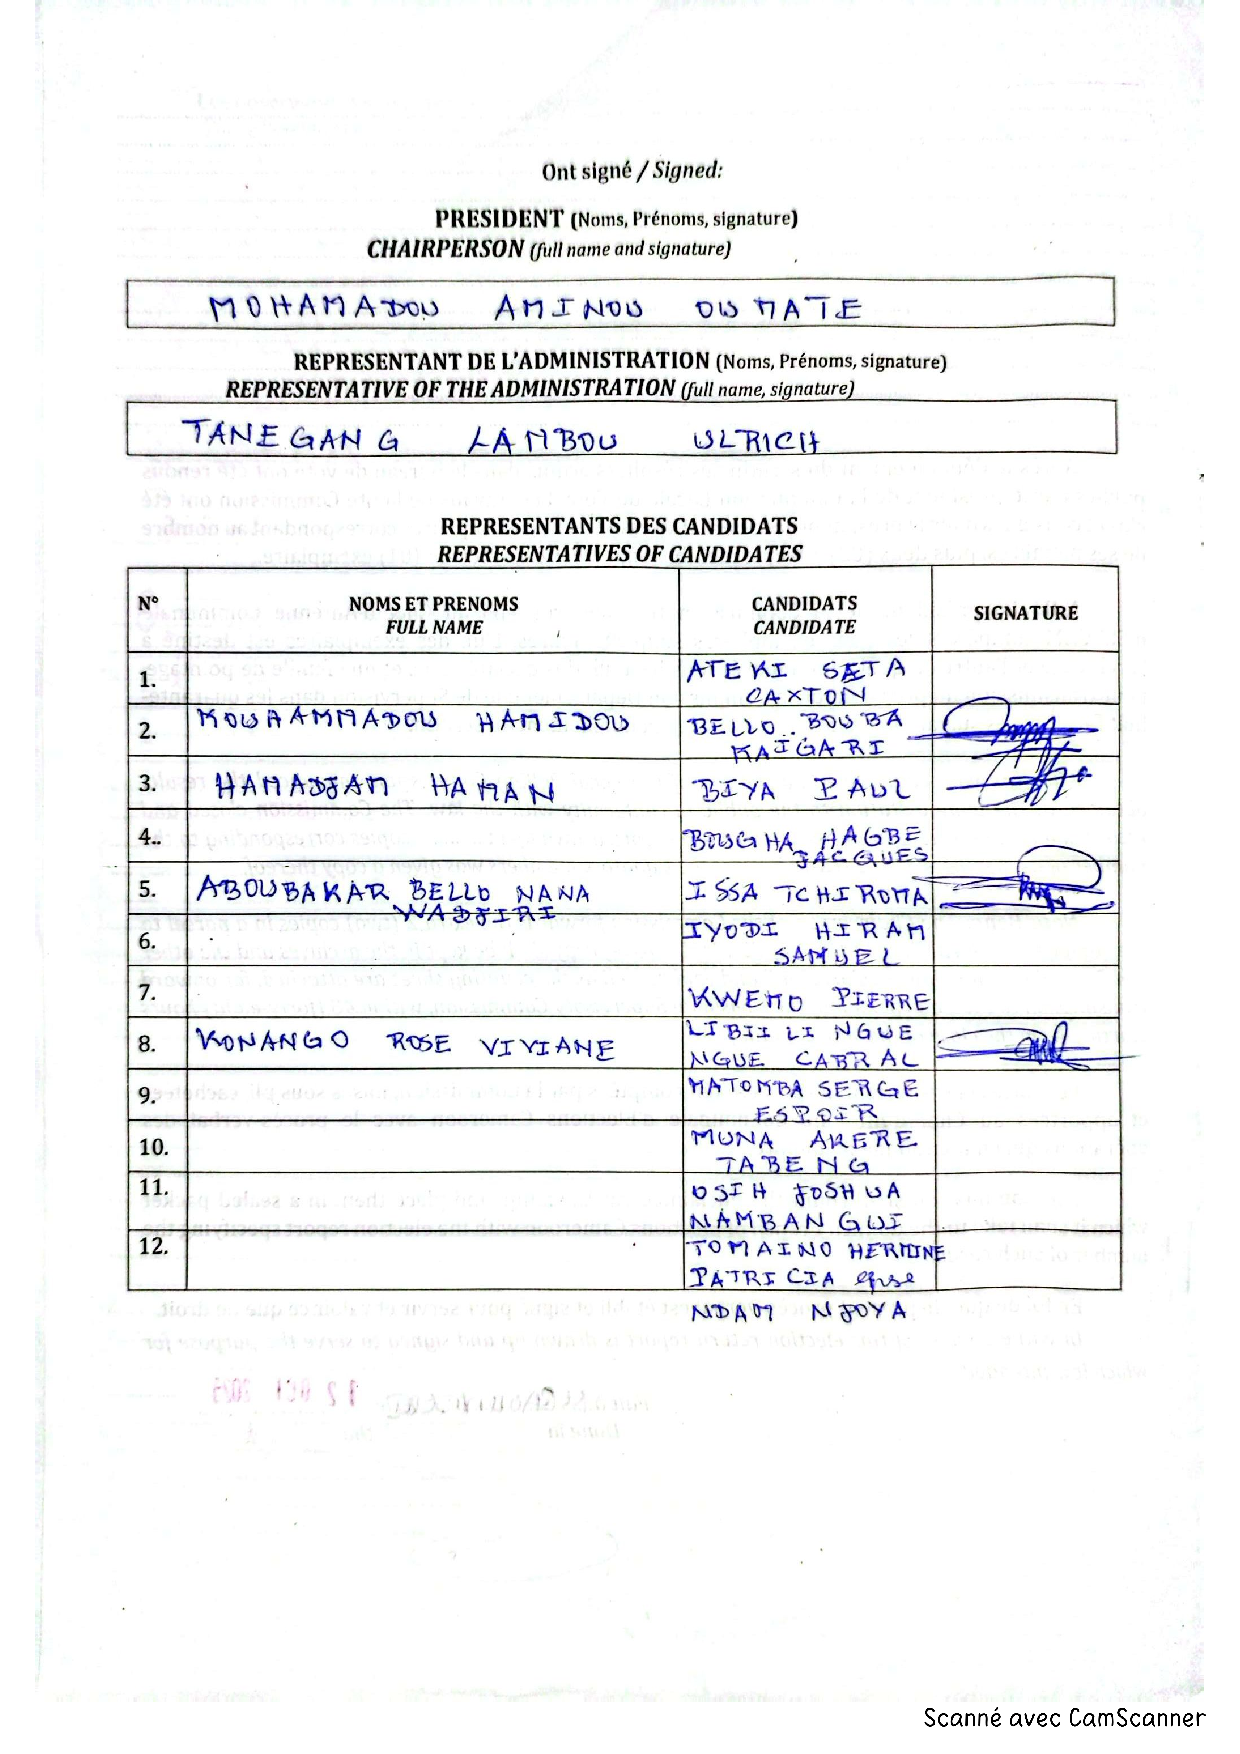 Ont signé / Signed:
PRESIDENT (Noms, Prénoms, signature)
CHAIRPERSON (full name and signature)
MOHAMADOU AMINOU OUMATE
REPRESENTANT DE L'ADMINISTRATION (Noms, Prénoms, signature)
REPRESENTATIVE OF THE ADMINISTRATION (full name, signature)
TANEGANG LAMBOU ULRICH
REPRESENTANTS DES CANDIDATS
REPRESENTATIVES OF CANDIDATES
N° NOMS ET PRENOMS CANDIDATS SIGNATURE
FULL NAME CANDIDATE
1. ATEKI SETA
CAXTON
2. MOUHAMMADOU HAMIDOU BELLO BOUBA
MAIGARI
3. HAMADJAM HAMAN BIYA PAUL
4.. BOUGHA HAGBE
JACQUES
5. ABOUBAKAR BELLO NANA ISSA TCHIROMA
WADJIRI
6. IYODI HIRAM
SAMUEL
7. KWEMO PIERRE
8. KONANGO ROSE VIVIANE LIBII LI NGUE
NGUE CABRAL
9. MATOMBA SERGE
ESPOIR
10. MUNA AKERE
TABENG
11. OSIH JOSHUA
NAMBANGUI
12. TOMAINO HERMINE
PATRICIA epse
NDAM NJOYA
Scanné avec CamScanner